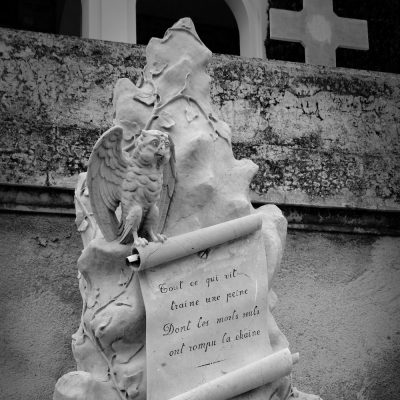 Tout ce qui vit
traine une peine
Dont les morts seuls
ont rompu la chaine